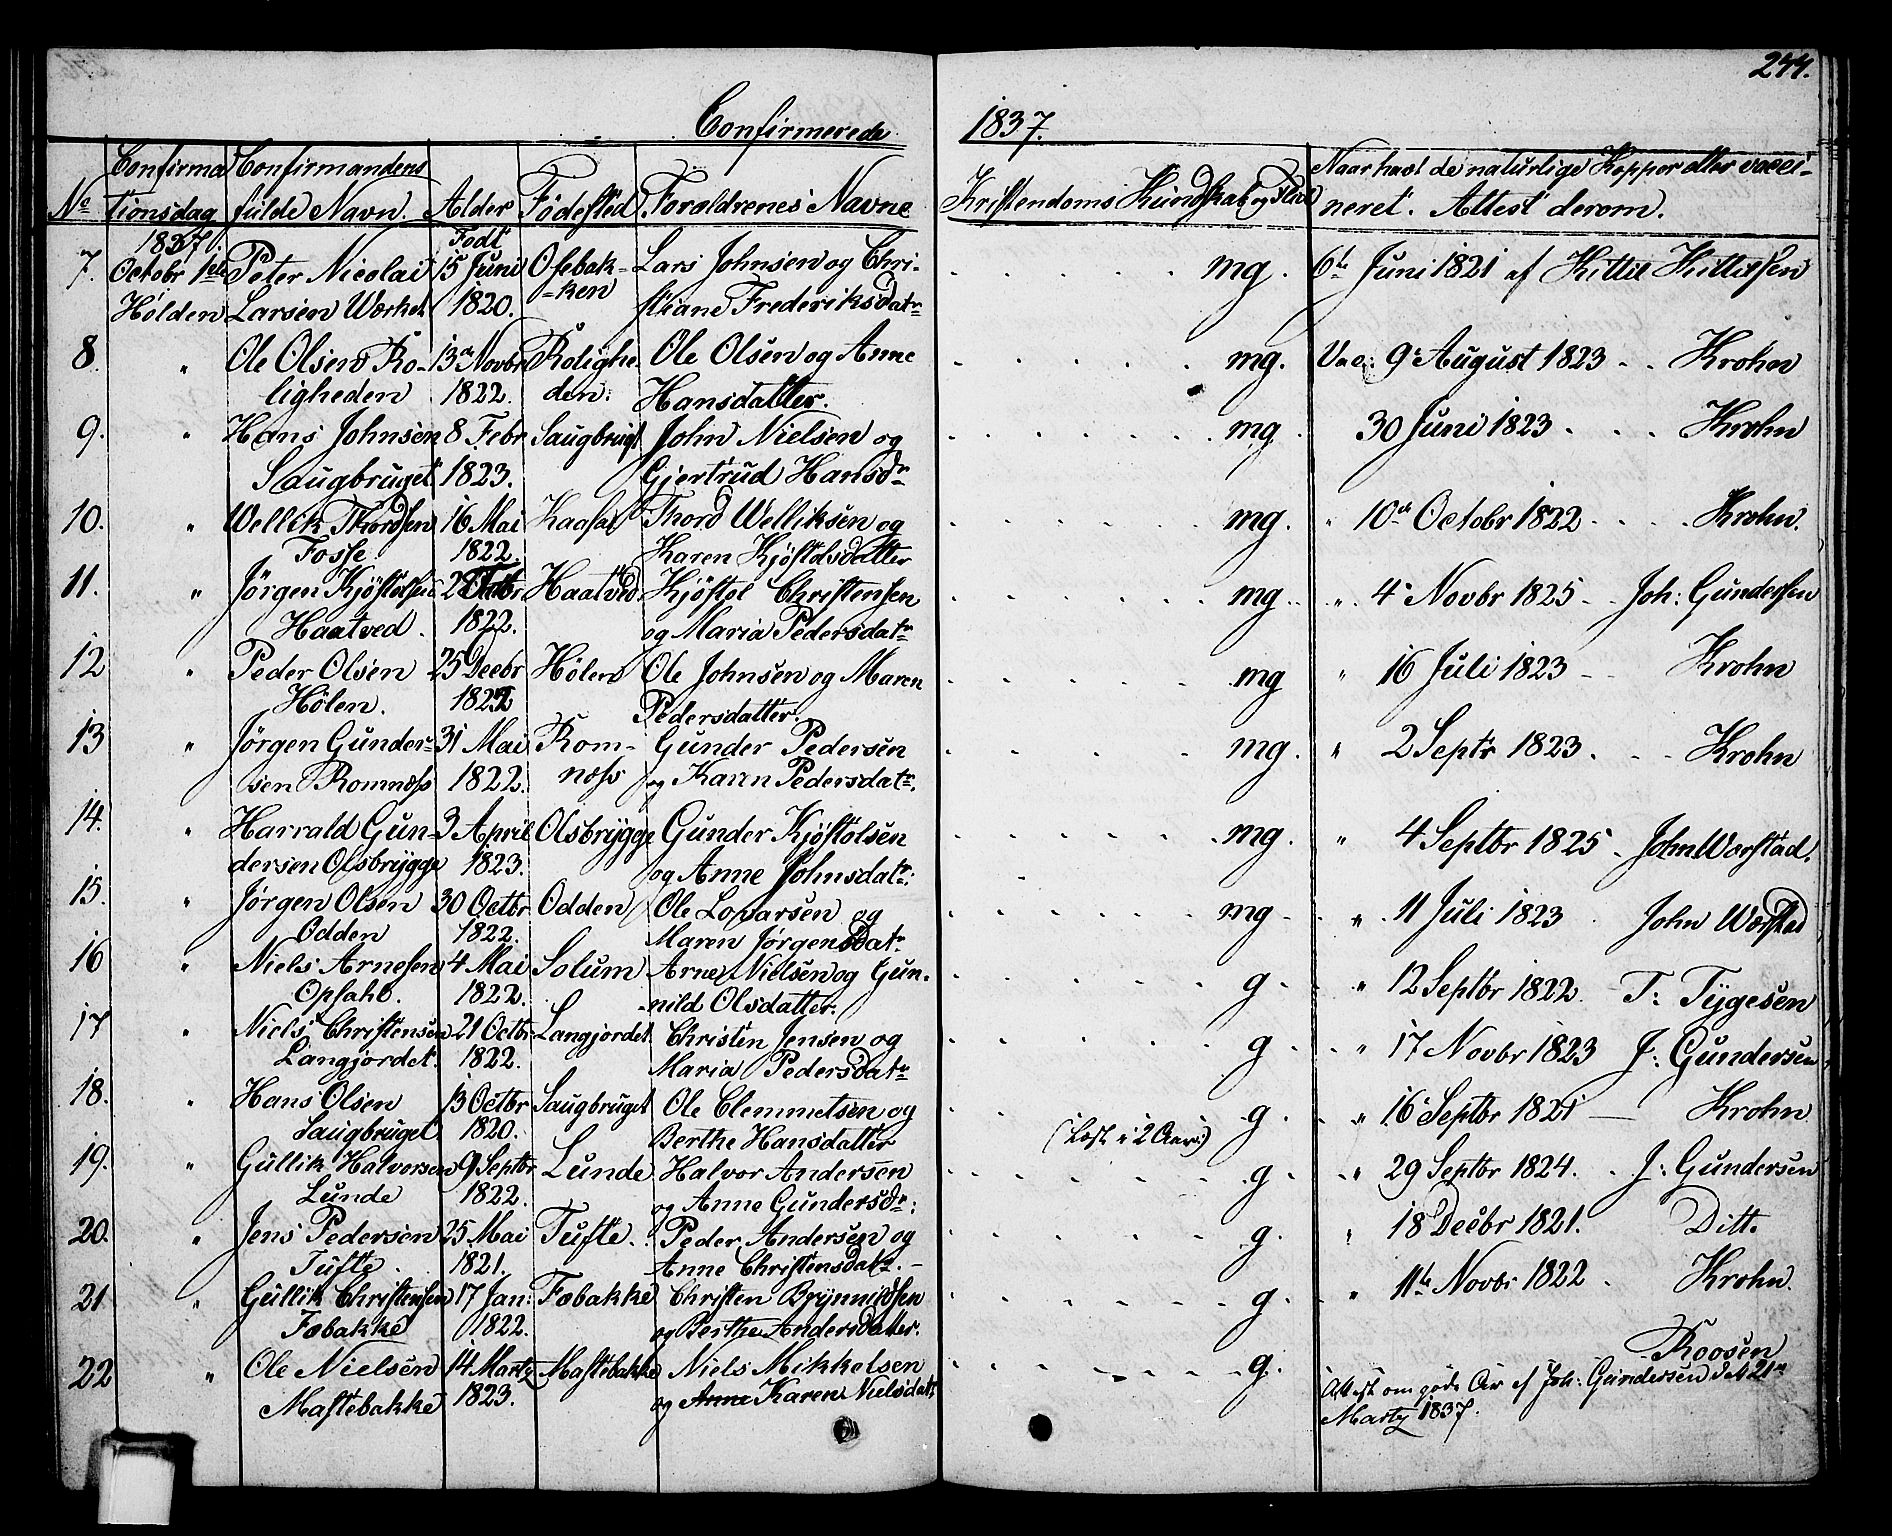 244.
Confirmerede 1837.
No Confirmationsdag Confirmandens fulde Navn. Alder Fødested Foraldrenes Navne Kristendoms Kundskab og Flid Naar havt de naturlige Kopper eller vaccineret. Attest derom.
1837. Født
7. Octobr 1ste Peter Nicolai 15 Juni Ofebak- Lars Johnsen og Chri- mg. 6te Juni 1821 af Kittil Kittilsen
Holden Larsen Værket 1820. -ken stiane Frederiksdatr
8 " Ole Olsen Ro- 13de Novbr Rolighe- Ole Olsen og Anne mg. Vac: 9 August 1823 - . Krohn
ligheden 1822. den. Hansdatter.
9. " Hans Johnsen 8 Febr Saugbrugt John Nielsen og mg 30 Juni 1823 Krohn
Saugbruget 1823. Gjertrud Hansdr
10. " Wellik Thordsen 16 Mai Kaasa Thord Welliksen og mg. " 10de Octobr 1822 Krohn.
Fosse 1822. Karen Kjøstolsdatter
11. " Jørgen Kjøstolsen 28 Haatved Kjøstol Christensen mg " 4 Novbr 1825 - Joh: Gundersen
Haatved. 1822. og Maria Pedersdatr
12 " Peder Olsen 25 Decbr Hølen Ole Johnsen og Maren mg " 16 Juli 1823 - Krohn
Hølen. 1822 Pedersdatter.
13 " Jørgen Gunder- 31 Mai Rom- Gunder Pedersen mg. " 2 Septr 1823. Krohn
sen Romnæss 1822. næss og Karen Pedersdatr.
14. " Harrald Gun- 3 April Olsbrygge Gunder Kjøstolsen mg. " 4 Septbr 1825 - John Worstad.
dersen Olsbrygge 1823. og Anne Johnsdatr:
15. " Jørgen Olsen 30 Octbr Odden Ole Lovarsen og mg " 11 Juli 1823 John Worstad
Odden 1822. Maren Jørgensdatr
16 " Niels Arnesen 4 Mai Solum Arne Nielsen og Gun- g " 12 Septbr 1822 T: Tygesen
Opsahl. 1822. nild Olsdatter.
17 " Niels Christensen 21 Octbr Langjordet Christen Jensen og g " 17 Novbr 1823 J: Gundersen
Langjordet. 1822. Maria Pedersdatr
18. " Hans Olsen 13 Octbr Saugbruget Ole Clemmetsen og g. " 16 Septbr 1821 — Krohn
Saugbruget. 1820. Berthe Hansdatter (Læst i 2 Aar.)
19. " Gullik Halvorsen 9 Septbr Lunde Halvor Andersen g " 29 Septbr 1824. J: Gundersen
Lunde 1822. og Anne Gundersdr:
20. " Jens Pedersen 25 Mai Tufte. Peder Andersen og g. " 18 Decbr 1821. Ditt.
Tufte. 1821. Anne Christensdatr. -
21 " Gullik Christensen 17 Jan: Fæbakke Christen Brynnildsen g " 11te Novbr 1822. Krohn.
Fæbakke 1822. og Berthe Andersdatter.
22 " Ole Nielsen 14 Marty Mastebakke Niels Mikkelsen g. Roosen
Mastebakke 1823. og Anne Karen Nielsdatr Attest om gode Ar af Joh: Gundersen d. 21de
Marty 1837.